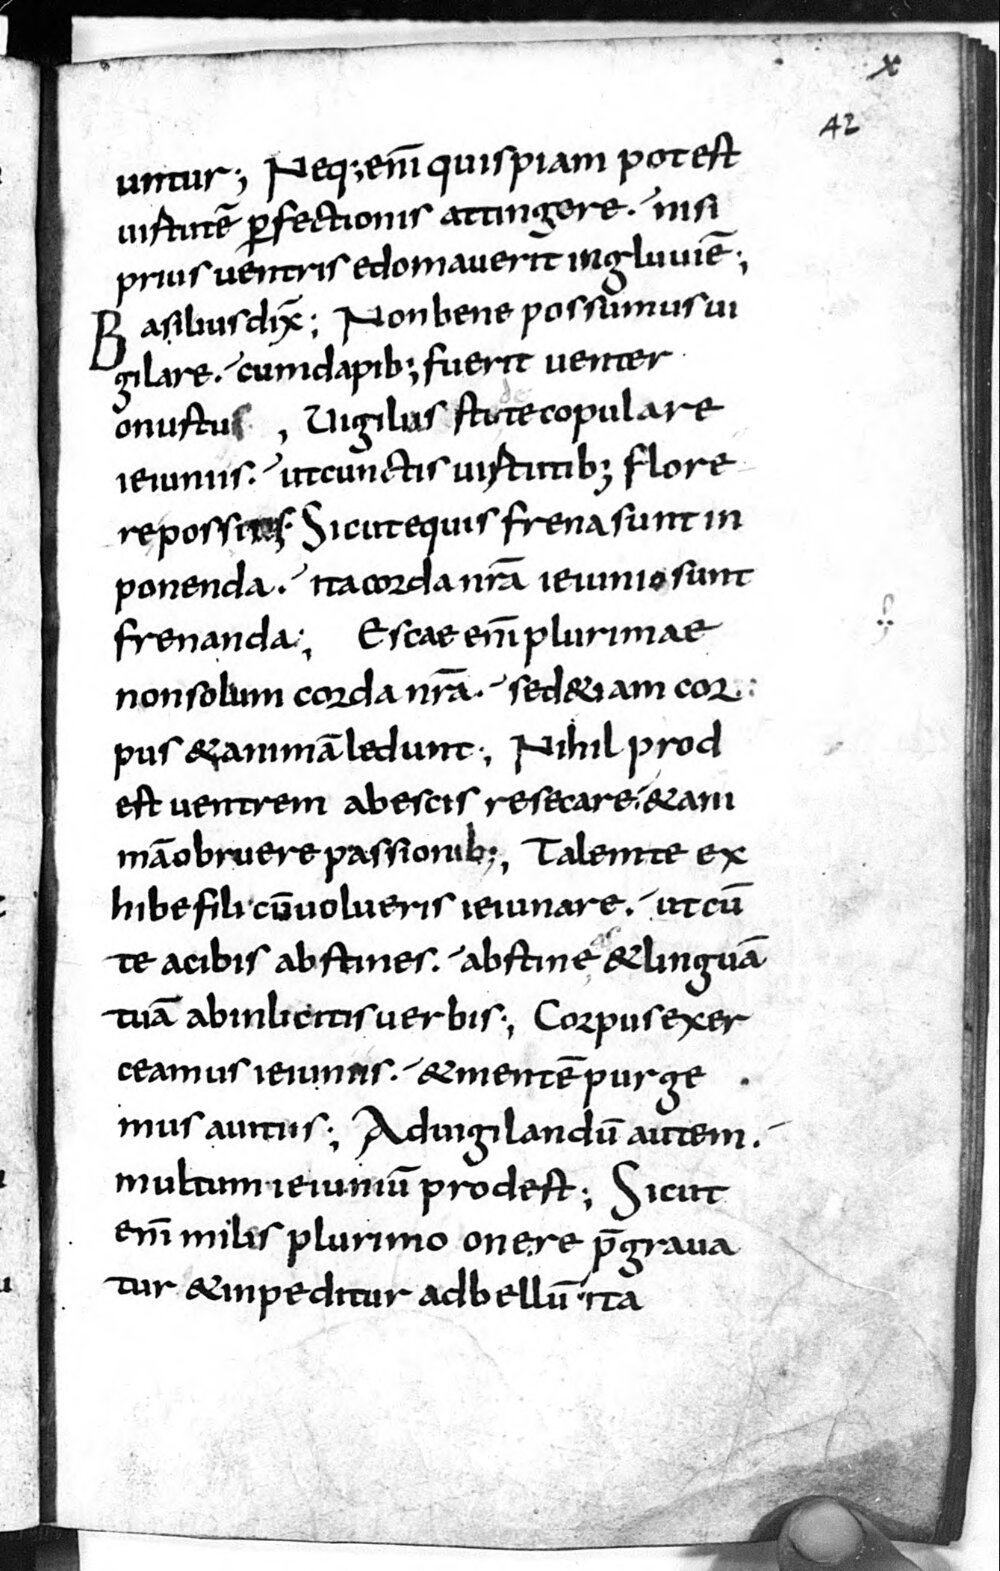 x
42
untur; Neq; eni̅ quispiam potest
uirtute̅ p̲fectionis attingere. nisi
prius uentris edomauerit ingluuie̅;
Basilius dix̅; Non bene possumus ui
gilare. cum dapib; fuerit uenter
onustus, Uigiliis stude copulare
ieiuniis. ut cunctis uirtutib; flore
re possis; Sicut equis frena sunt in
ponenda. ita corda nr̅a ieiunio sunt
frenanda; Escae eni̅ plurimae
non solum corda nr̅a. sed & iam cor
pus & anima̅ ledunt; Nihil prod
est uentrem ab escis resecare. & ani
ma̅ obruere passionib;, Talem te ex
hibe fili cu̅ uolueris ieiunare. ut cu̅
te a cibis abstines. abstine & lingua̅
tua̅ ab inlicitis uerbis; Corpus exer
ceamus ieiuniis. & mente̅ purge
mus a uitiis; Ad uigilandu̅ autem.
multum ieiuniu̅ prodest; Sicut
eni̅ miles plurimo onere p̅graua
tur & inpeditur ad bellu̅ ita